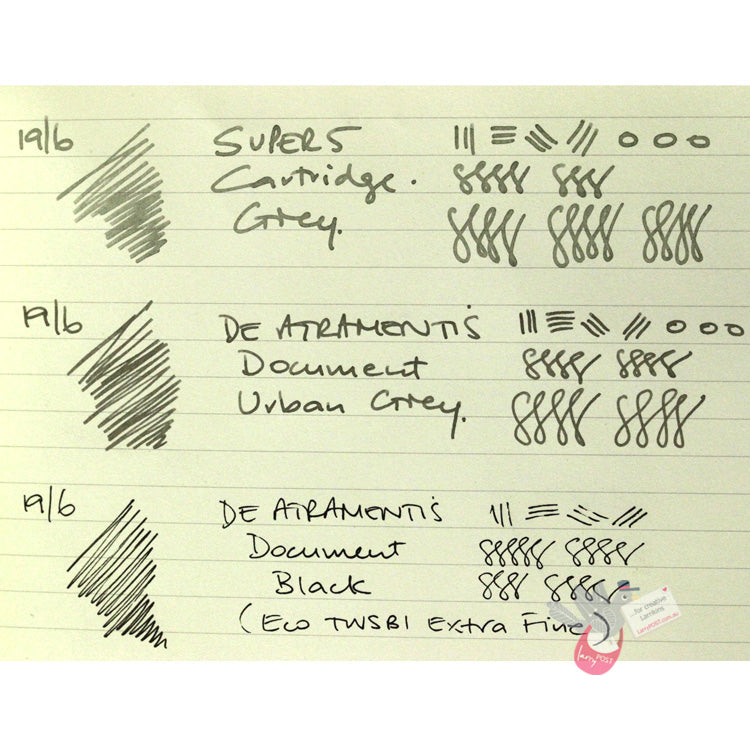 19/6
SUPER5
Cartridge.
Grey.
19/6
DE ATRAMENTIS
Document
Urban Grey.
19/6
DE ATRAMENTIS
Document
Black
(Eco TWSBI Extra Fine)
...for creative
Larrikins
LarryPOST.com.au
larryPOST